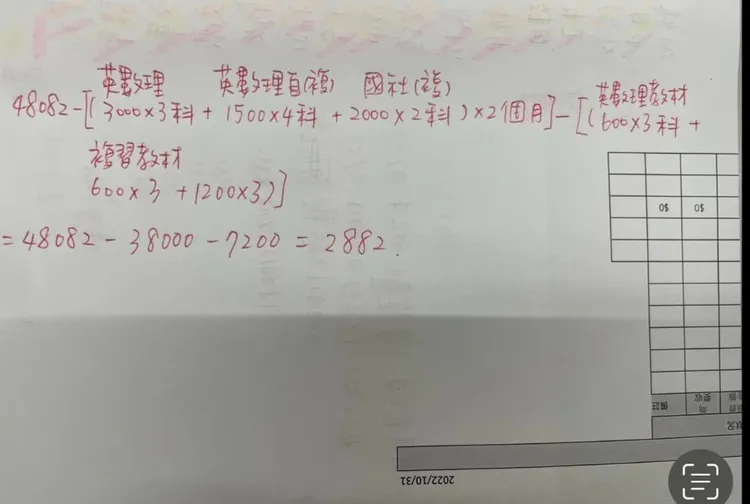 英數理 英數理自(複) 國社(複) 英數理教材
48082-[(3000×3科+1500×4科+2000×2科)×2個月]-[(600×3科+
複習教材
600×3+1200×3)]
=48082-38000-7200=2882.
$0 $0
備註
2022/10/31